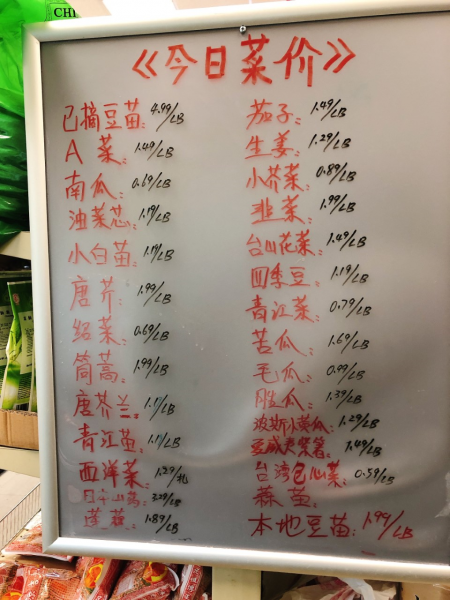 CHI
《今日菜价》
已摘豆苗: 4.99/LB
A 菜: 1.49/LB
南瓜: 0.69/LB
油菜芯: 1.19/LB
小白苗: 1.19/LB
唐芥: 1.99/LB
绍菜: 0.69/LB
筒蒿: 1.99/LB
唐芥兰: 1.11/LB
青江苗: 1.1/LB
西洋菜: 1.29/扎
3.29/LB
莲藕: 1.89/LB
茄子: 1.49/LB
生姜: 1.29/LB
小芥菜: 0.89/LB
韭菜: 1.99/LB
台山花菜: 1.49/LB
四季豆: 1.19/LB
青江菜: 0.79/LB
苦瓜: 1.69/LB
毛瓜: 0.99/LB
胜瓜: 1.39/LB
波斯小黄瓜: 1.29/LB
夏威夷紫薯: 1.49/LB
台湾包心菜: 0.59/LB
蒜苗:
本地豆苗: 1.99/LB